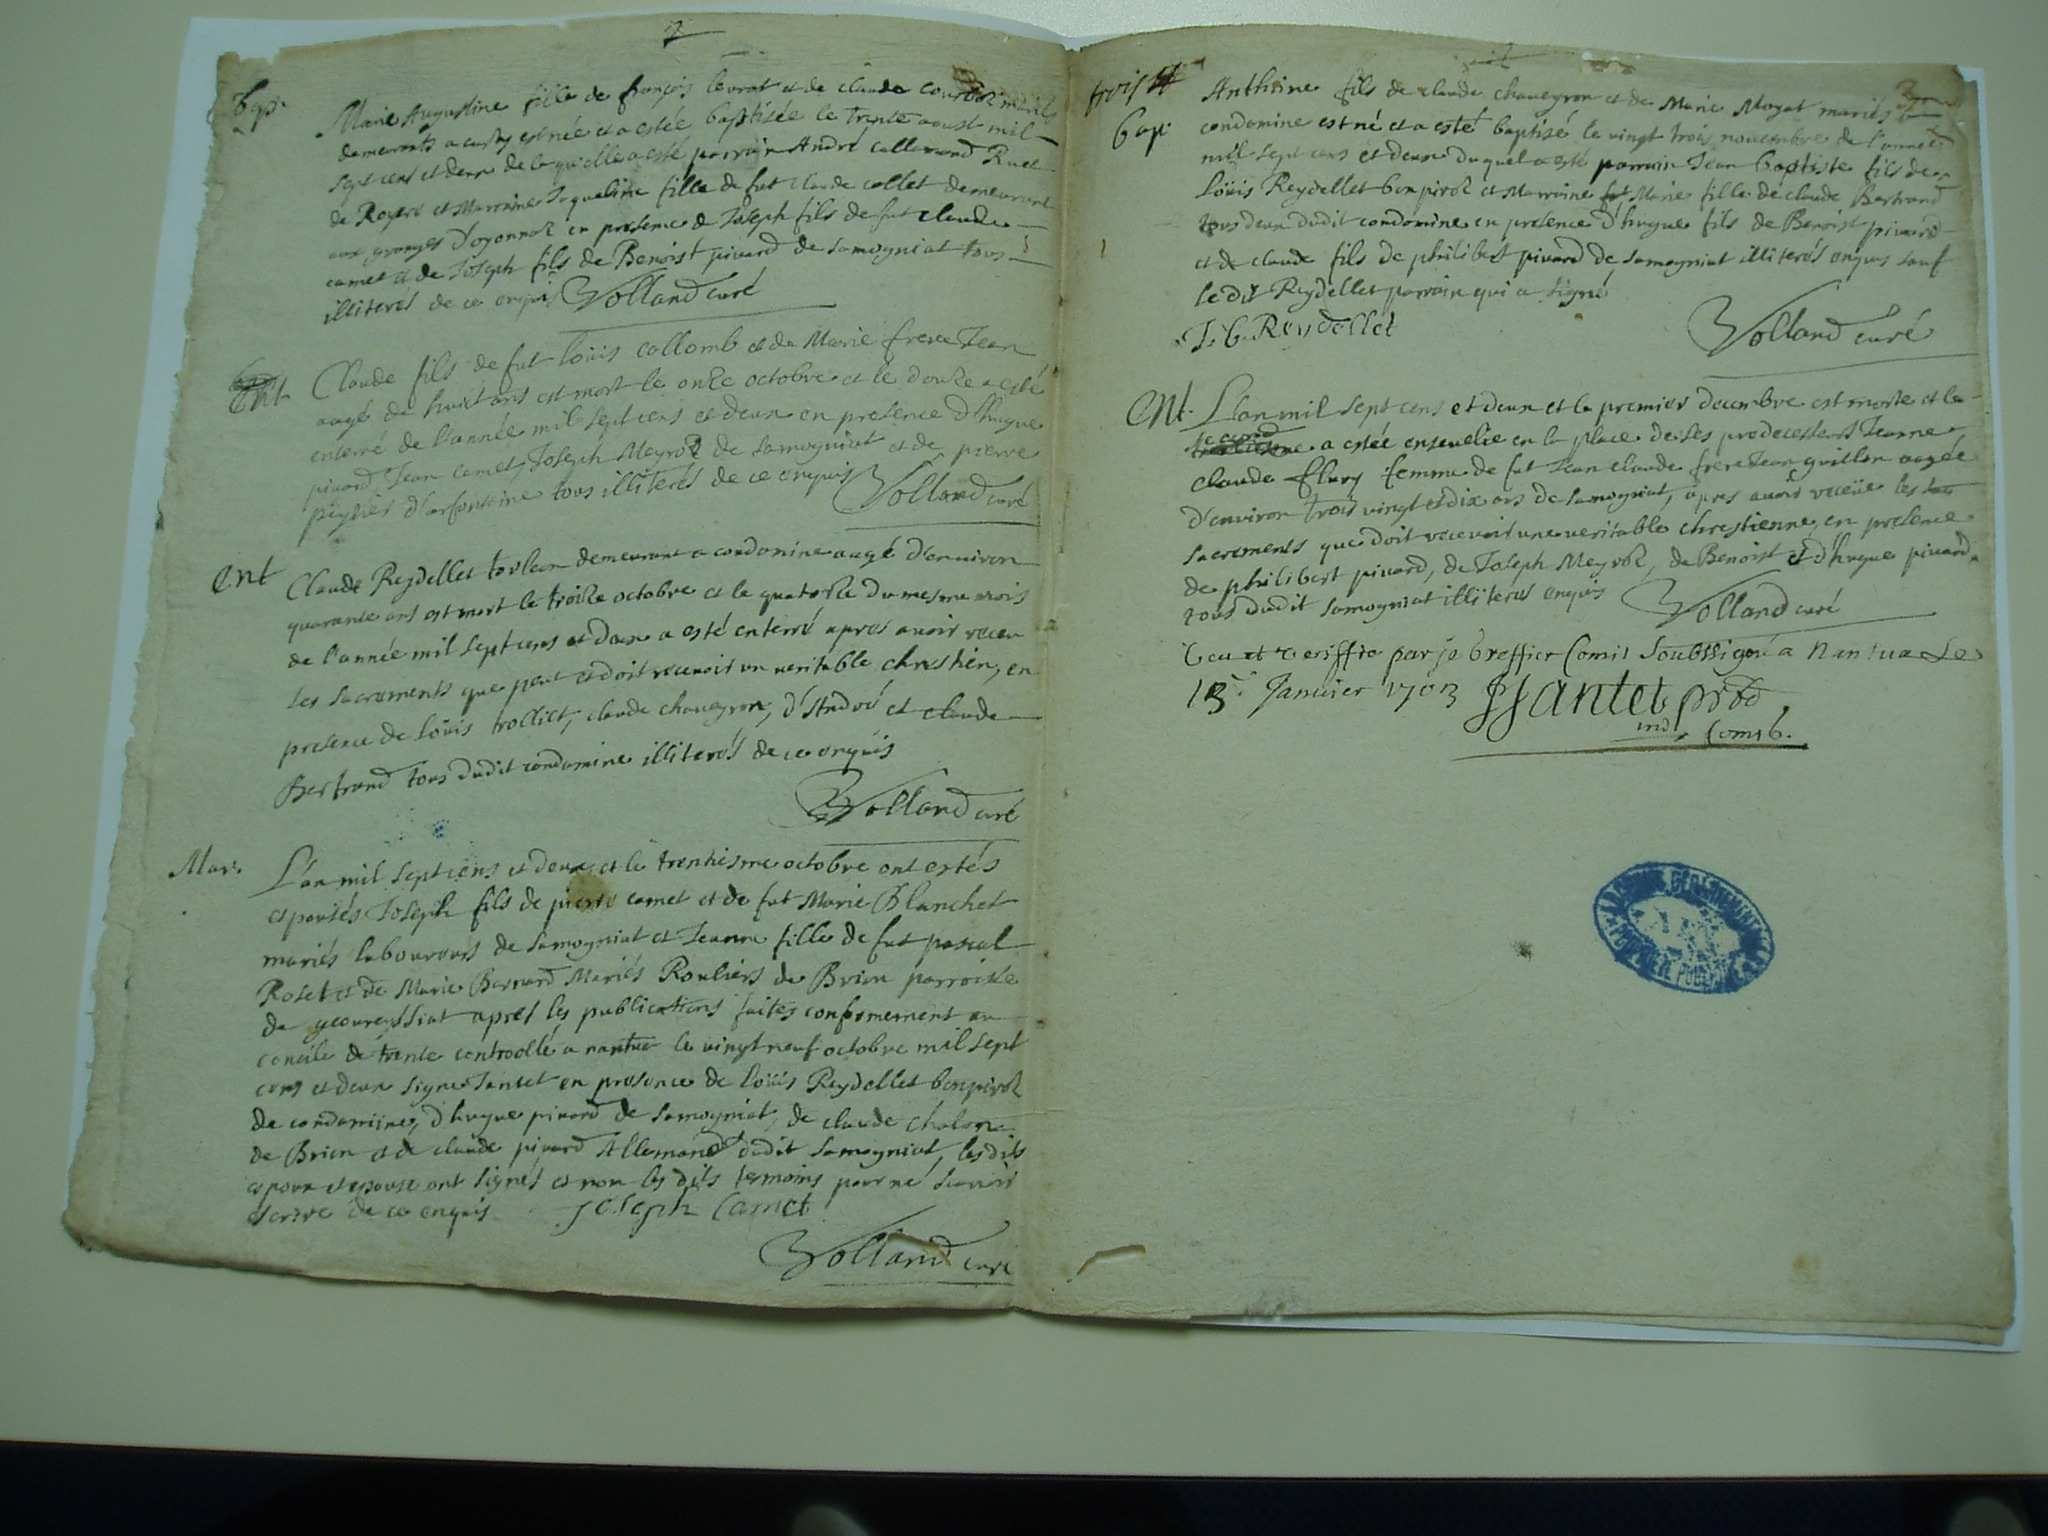 2
Bap.
Marie Augustine fille de françois levrat et de claude mariés
demeurants a est née et a estée baptisée le trente aoust mil
sept cens et deux de laquelle a esté parrain André collomond
de Royere et Marraine Jaqueline fille de fut claude collet demeurant
aux granges D'oyonnaz en presence de Joseph fils de fut claude
camet et de Joseph fils de Benoist pivard de Samogniat tous
illiterés de ce enquis Volland curé
Ent
Claude fils de fut loüis collomb et de Marie frere Jean
aagé de huict ans est mort le onze octobre et le douze a esté
enterré de l'année mil sept cens et deux en presence d'hugue
pivard Jean camet, Joseph Meyroz de Samogniat et de pierre
d'arfontaine tous illiterés de ce enquis Volland curé
Ent
Claude Reydellet demeurant a condamine aagé d'environ
quarante ans est mort le troize octobre et le quatorze du mesme mois
de l'année mil sept cens et deux a esté enterré apres avoir receu
les sacrements que peut et doit recevoir un veritable chrestien, en
presence de loüis trolliet, claude chaveyron, d'André et claude
Bertrand tous dudit condamine illiterés de ce enquis
Volland curé
Mar.
L'an mil sept cens et deux et le trentiesme octobre ont estés
espousés Joseph fils de pierre camet et de fut Marie Blanchet
mariés laboureurs de Samogniat et Jeanne fille de fut pascal
Roset et de Marie Bernard Mariés Rouliers de Brion parroisse
de geovreyssiat apres les publications faites conformement au
concile de trente controollé a nantua le vingt neuf octobre mil sept
cens et deux signe Jantet en presence de loüis Reydellet bonpiroz
de condamine, d'hugue pivard de Samogniat, de claude chalon
de Brion et de claude pivard Allemand dudit Samogniat, lesdits
epoux et epouse ont signés et non les dits temoins pour ne sçavoir
escrire de ce enquis Joseph Camet
Volland curé
trois
3
Bap.
Anthoine fils de claude chaveyron et de Marie Mozat mariés
condamine est né et a esté baptisé le vingt trois novembre de l'année
mil sept cens et deux duquel a esté parrain Jean baptiste fils de
Loüis Reydellet bonpiroz et Marraine Marie fille de claude Bertrand
tous deux dudit condamine en presence d'hugue fils de Benoist pivard
et de claude fils de philibert pivard de Samogniat illiterés enquis sauf
le dit Reydellet parrain qui a signé
J. b. Reydellet Volland curé
Ent.
L'an mil sept cens et deux et le premier decembre est morte et le
second
a estée ensevelie en la place de ses predecesseurs Jeanne
claude flury femme de fut Jean claude frere Jean guillon aagée
d'environ trois vingt et dix ans de Samogniat, apres avoir receüe les
sacrements que doit recevoir une veritable chrestienne, en presence
de philibert pivard, de Joseph Meyroz, de Benoist et d'hugue pivard
tous dudit Samogniat illiterés enquis Volland curé
Veu et veriffie par je Greffier Comis Soubssigné a Nantua Le
13e Janvier 1703 Jantet
Comis